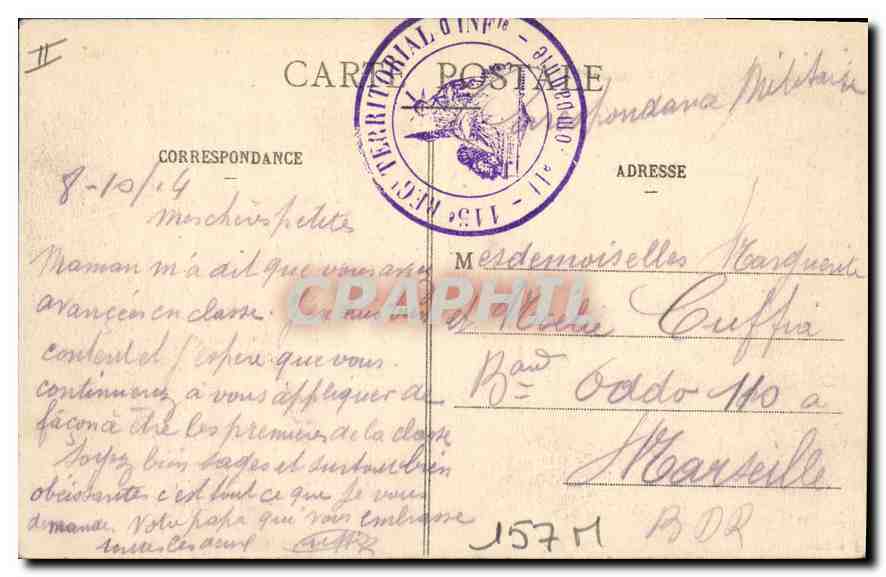 II
CARTE POSTALE
115e REGt TERRITORIAL D'INFie
Correspondance Militaire
CORRESPONDANCE
ADRESSE
8-10/14
Mes chères petites
Maman m'a dit que vous
avancées en classe. J'en suis
content et j'espère que vous
continuerez à vous appliquer de
façon à être les premières de la classe
Soyez bien sages et surtout bien
obéissantes c'est tout ce que je vous
demande. Votre papa qui vous embrasse
toutes les deux
Mesdemoiselles Marguerite
et Cuffia
Bard Oddo 110 à
Marseille
BDR
157 M
CPAPHIL